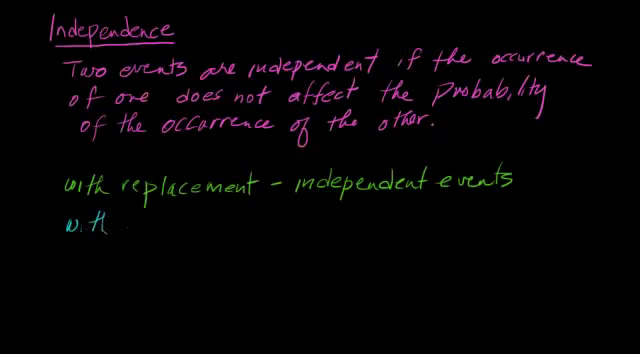 Independence
Two events are independent if the occurrence
of one does not affect the Probability
of the occurrence of the other.
with replacement - independent events
with